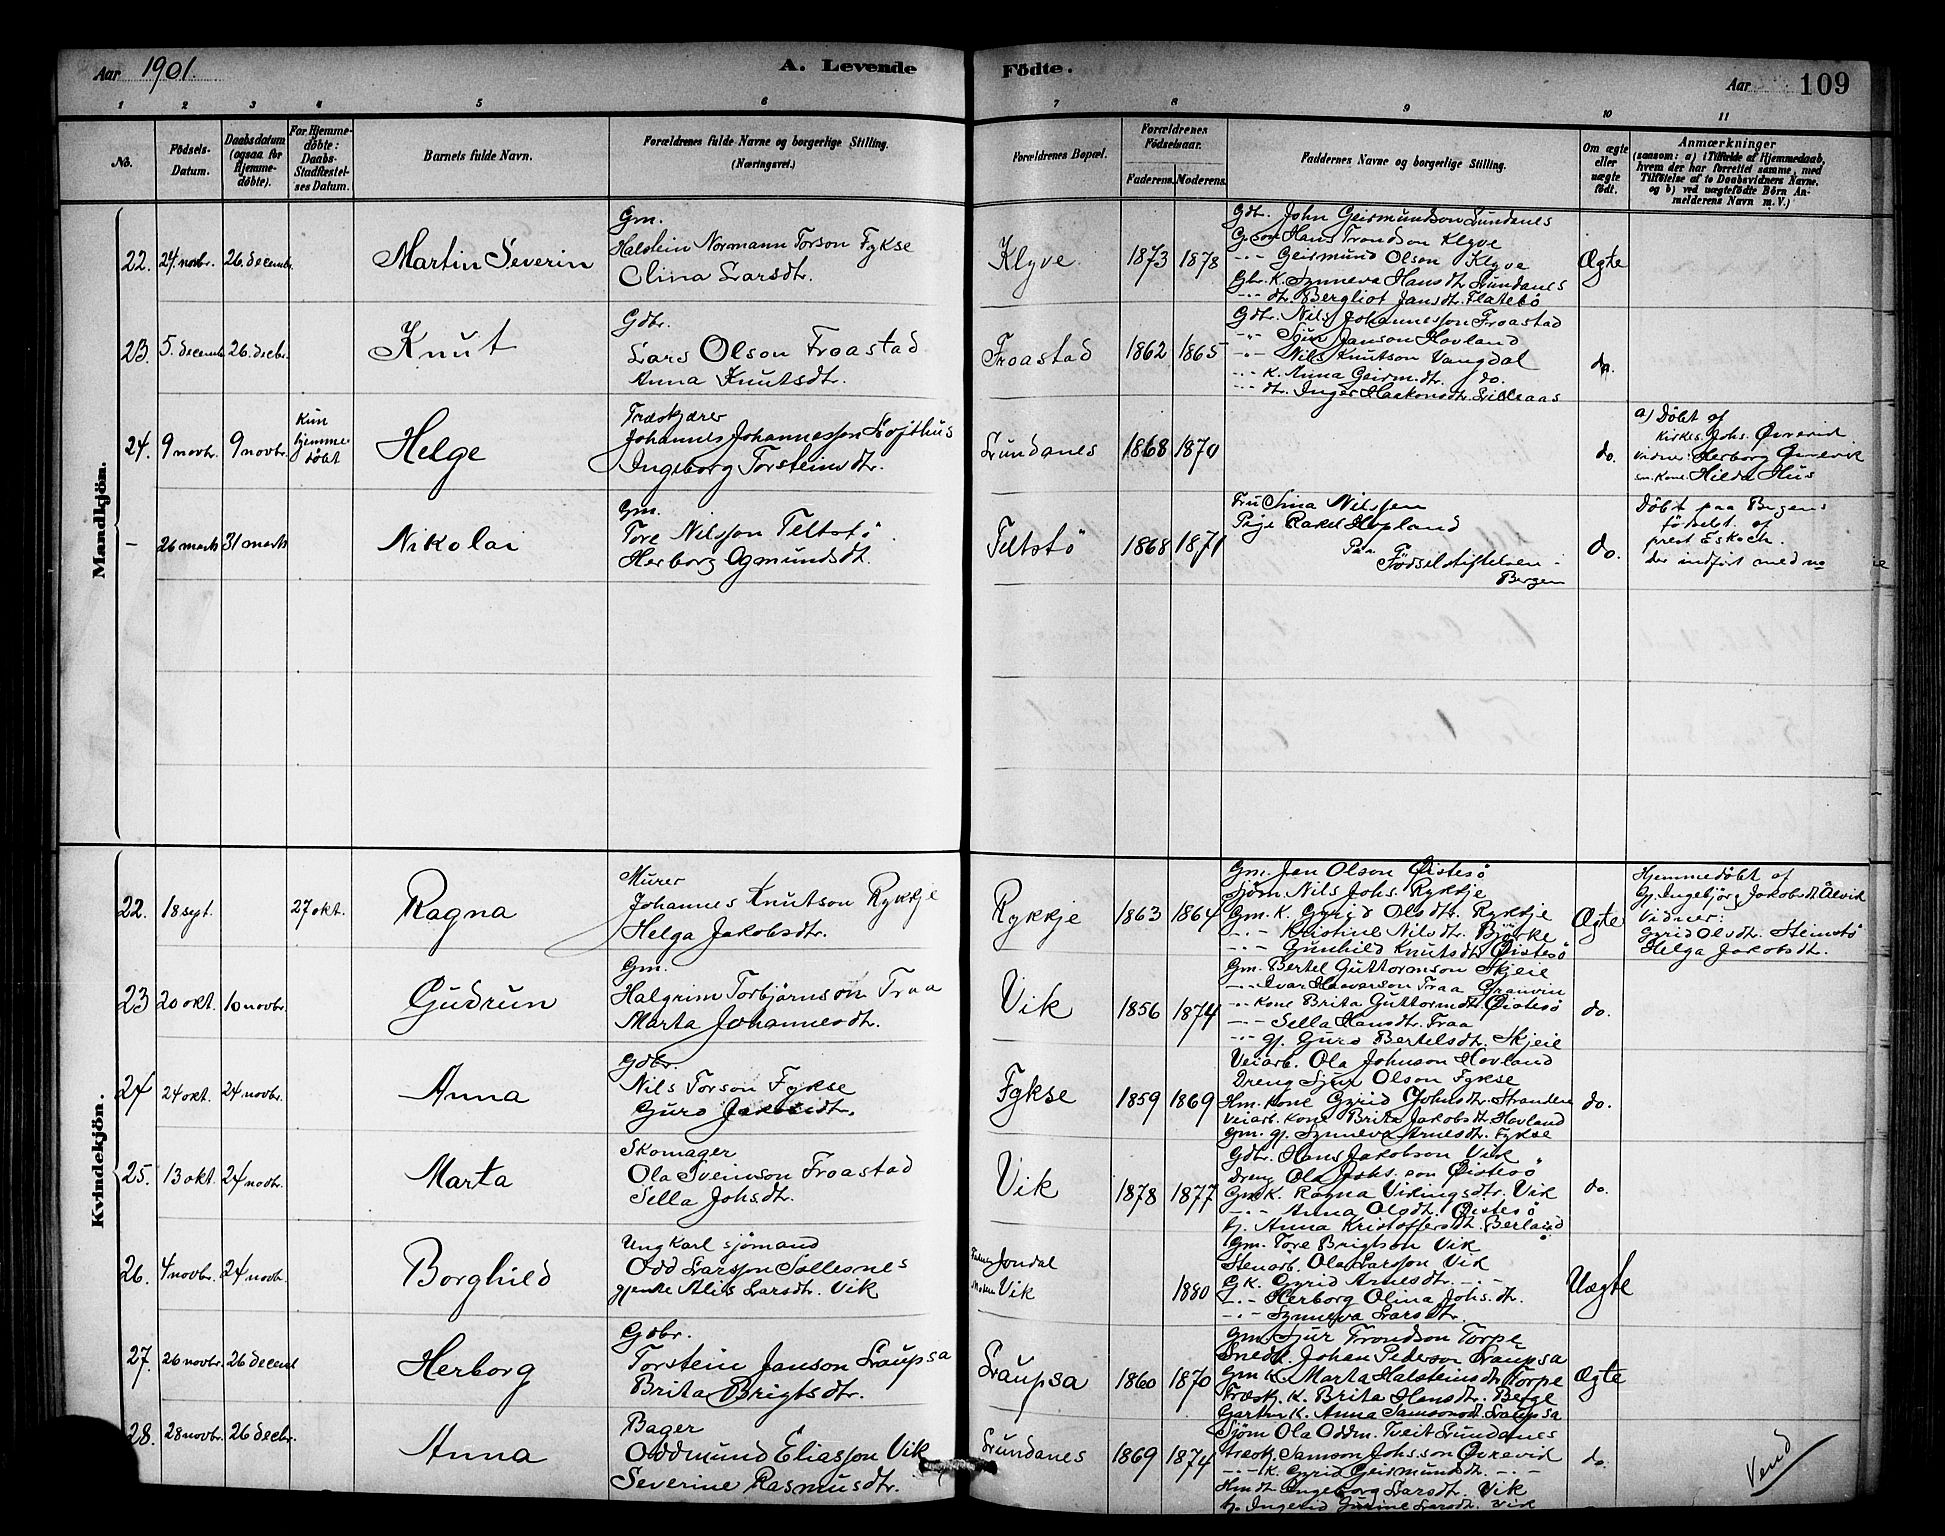 Aar 1901.
A. Levende Födte.
Aar 109
1 2 3 4 5 6 7 8 9 10 11
No.
Födsels-Datum.
Daabsdatum (ogsaa for Hjemme-döbte).
For Hjemme-döbte: Daabs-Stadfæstel-ses Datum.
Barnets fulde Navn.
Forældrenes fulde Navne og borgerlige Stilling.
(Næringsvei.)
Forældrenes Bopæl.
Forældrenes Födselsaar.
Faderens. Moderens.
Faddernes Navne og borgerlige Stilling.
Om ægte eller uægte födt.
Anmærkninger
(saasom: a) i Tilfælde af Hjemmedaab, hvem der har forrettet samme, med Tilföielse af to Daabsvidners Navne, og b) ved uægtefödte Börn Anmelderens Navn m. V.)
Mandkjön.
22. 24 novbr. 26. decembr. Martin Severin
Gm.
Halstein Normann Torson Fykse
Olina Larsdtr.
Klyve 1873 1878
Gdbr. John Geirmundson Lundanes
Hans Trondson Klyve
-"- Geirmund Olson Klyve
Gbr. K. Synneva Hansdtr Lundanes
-"- dt. Bergliot Jansdtr. Flatebö
Ægte
23. 5. decemb 26. decbr. Knut
Gdbr.
Lars Olson Froastad
Anna Knutsdtr.
Froastad 1862 1865
Gdbr. Nils Johannesson Froastad
-"- Sjur Janson Hovland
-"- Nils Knutson Vangdal
-"- K. Anna Geirm.dtr. do.
-"- dt. Inger Haakonsdtr. Lilleaas
do.
24. 9 novbr. 9 novbr. Kun hjemme döbt Helge
Træskjærer
Johannes Johannesson Lofthus
Ingeborg Torsteinsdtr.
Lundanes 1868 1870
do.
a) Döbt af
Kirkes. Johs. Øvrevid
Vidner: Herborg Øvrevik
sm. kone Hilda Hus
- 26 marts 31 marts Nikolai
Gm.
Tore Nilsson Teltstö
Herborg Ogmundsdt.
Teltstö 1868 1871
Fru Sina Nilssen
Pige Rakel Hopland
Paa
Födselsstiftelsen
Bergen
do.
Döbt paa Bergens
födselst. af
prest Eskoch.
der indfört med no
Kvindekjön.
22. 18 sept. 27 okt. Ragna
Murer
Johannes Knutson Rykkje
Helga Jakobsdtr.
Rykkje 1863 1864
Gm. Jan Olson Øistesö
Sjöm. Nils Johs. Rykkje
Gm. K. Gyrid Olsdtr. Rykkje
-"- Kristine Nilsdtr. Björke
-"- Gunhild Knutsdtr Øistesö
Ægte
Hjemmedöbt af
Gj. Ingebjörg Jakobsdt. Ålvid
Vidner:
Gyrid Olsdtr. Steinstö
Helga Jakobsdt.
23 20 okt. 10 novbr. Gudrun
Gm.
Halgrim Torbjörnson Traa
Marta Johannesdt.
Vik 1856 1874
Gm. Bertel Guttormson Skjeie
-"- Ivar Haaverson Traa Granvin
-"- kone Brita Guttormsdt. Øistesö
-"- Sella Hansdtr. Traa
-"- gj. Guro Bertelsdt. Skjeie
do.
24 24 okt. 24 novbr. Anna
Gdbr.
Nils Torson Fykse
Guro Jakobsdt.
Fykse 1859 1869
Veiarb. Ola Johnson Hovland
Dreng Sjur Olson Fykse
Hm. kone Gyrid Johnsdtr. Stranden
Veiarb. kone Brita Jakobsdtr Hovland
Gm. gj. Synneva Arnesdtr. Fykse
do.
25. 13 okt. 24 novbr. Marta
Skomager
Ola Sveinson Froastad
Sella Johsdt.
Vik 1878 1877
Gdbr. Hans Jakobson Vik
Dreng Ola Johs.son Øistesö
Gm K. Ragna Vikingsdtr. Vik
-"- Anna Olsdt. Øistesö
Pj. Anna Kristoffersdt. Berland
do.
26. 4 novbr. 24 novbr. Borghild
Ungkarl sjömand
Odd Larsson Sollesnes
gjente Alis Larsdtr. Vik
Faderen Jondal
Moderen Vik
1880
Gm. Tore Brigtson Vik
Stenarb. Ola Larsson Vik
G K. Gyrid Arnesdtr. -"-
-"- Herborg Olina Johs.dt.
-"- Synneva Larsdtr.
Uægte
27. 26 novbr. 26 decemb Herborg
Gdbr.
Torstein Janson Laupsa
Brita Brigtsdtr.
Laupsa 1860 1870
Gm. Sjur Trondson Torpe
Snedk. Johan Pederson Laupsa
Gm K. Marta Halsteinsdtr Torpe
Træsk. K. Brita Hansdt. Berge
Gartn. K. Anna Samsonsdt. Laupsa
Ægte
28. 28 novbr. 26 decbr. Anna
Bager
Oddmund Eliasson Vik
Severine Rasmusdtr.
Lundanes 1869 1874
Sjöm Ola Oddm. Tveit Lundanes
træsk. Samson Johs.son Øvrevid
-"- K. Gyrid Geirmundsdt. -"-
Hm dt Ingeborg Larsdt. Vik
Pj. Ingerid Gurine Larsdt. Vik
do.
Vend